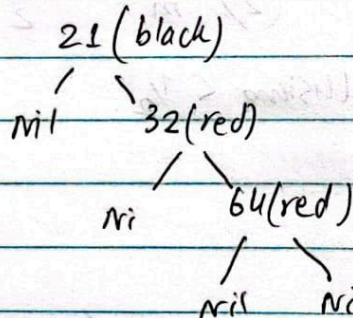 21 (black)
Nil 32 (red)
Ni 64 (red)
Nil Ni